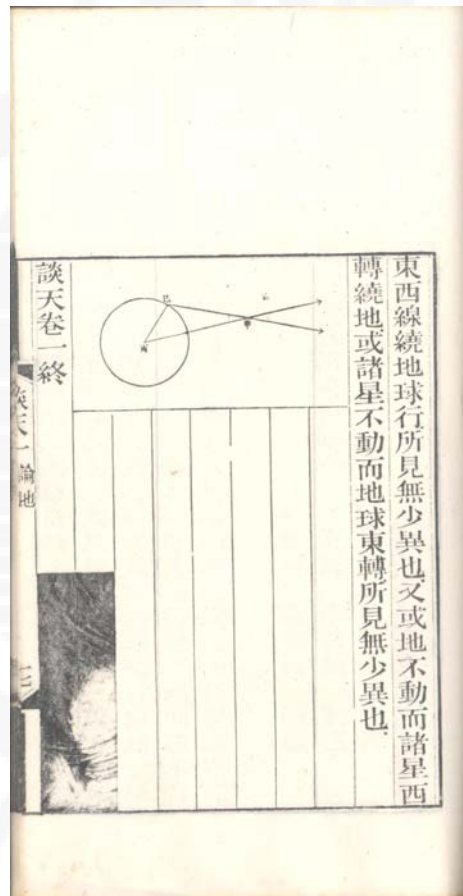 東西線繞地球行所見無少異也又或地不動而諸星西
轉繞地或諸星不動而地球東轉所見無少異也
丙
談天卷一終
談天一 論地